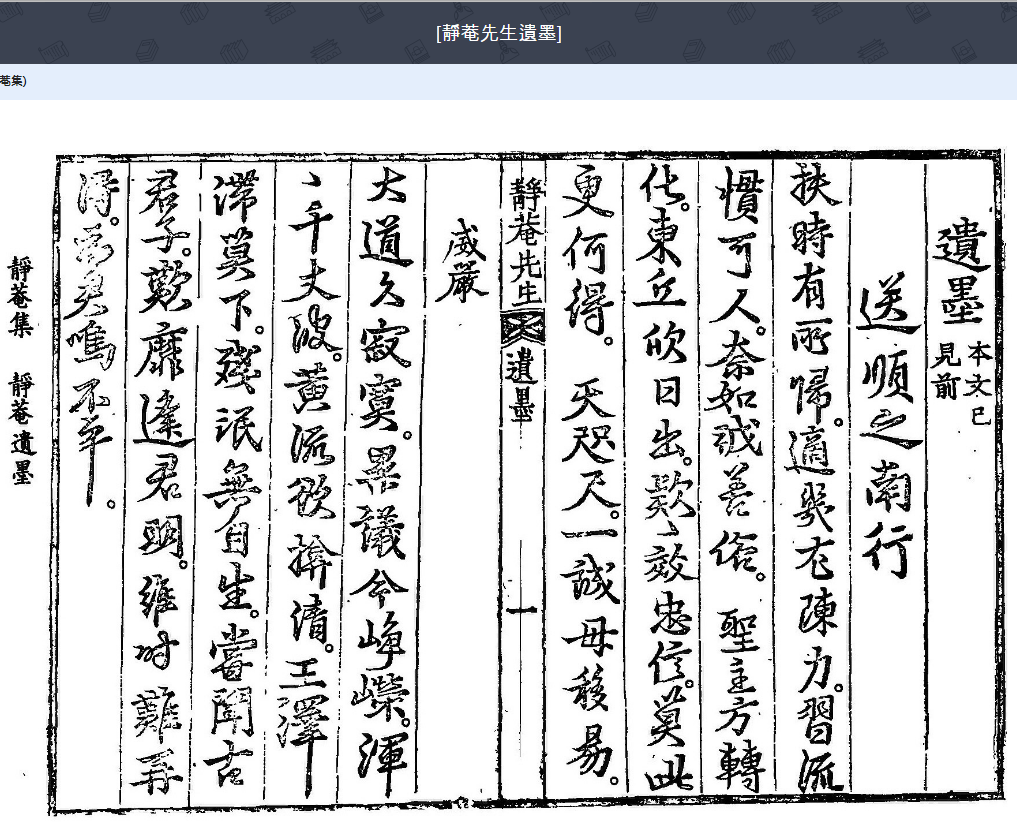 [靜菴先生遺墨]
菴集)
遺墨 本文已見前
送順之南行
扶時有所歸。適幾在陳力。習流
慣可人。奈如誠善俗。聖主方轉
化。東丘欣日出。欵〻效忠信。莫此
更何得。天咫尺。一誠毋移易。
靜菴先生 遺墨 一
威嚴
大道久寂寞。異議今崢嶸。渾
〻千丈波。黃流欲揜清。王澤
滯莫下。殘氓無自生。當聞古
君子。歎靡達君明。維时難再
得。君鳴不平。
靜菴集 靜菴遺墨